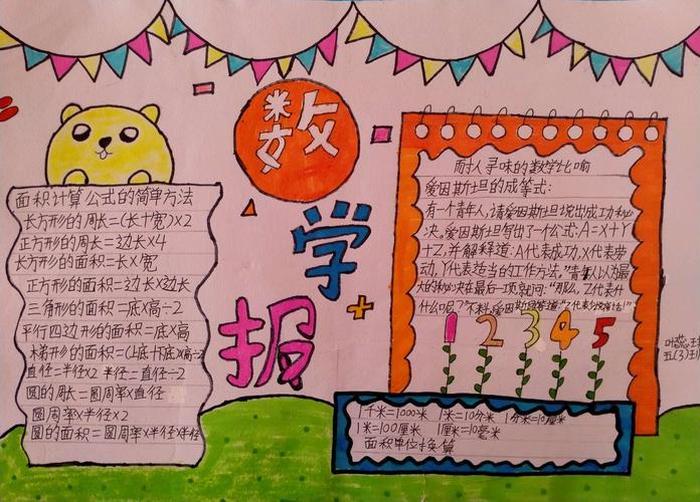 数
学
报
面积计算公式的简单方法
长方形的周长=(长+宽)×2
正方形的周长=边长×4
长方形的面积=长×宽
正方形的面积=边长×边长
三角形的面积=底×高÷2
平行四边形的面积=底×高
梯形的面积=(上底+下底)×高÷2
直径=半径×2 半径=直径÷2
圆的周长=圆周率×直径
圆周率×半径×2
圆的面积=圆周率×半径×半径
耐人寻味的数学比喻
爱因斯坦的成等式:
有一个青年人,请爱因斯坦说出成功秘
决。爱因斯坦写出了一个公式:A=X+Y
+Z,并解释道:A代表成功,X代表劳
动,Y代表适当的工作方法。"青年人以为最
大的秘决在最后一项就问:"那么,Z代表什
什么呢?"不料,爱因斯坦答道:"Z代表少说
1 2 3 4 5
五(3)班
1千米=1000米 1米=10分米 1分米=10厘米
1米=100厘米 1厘米=10毫米
面积单位换算